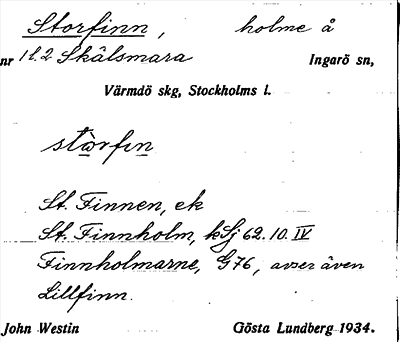 Storfinn, holme å
nr 1 l. 2 Skälsmara Ingarö sn,
Värmdö skg, Stockholms l.
stòrfın
St. Finnen, ek
St. Finnholm, kSj 62.10.IV
Finnholmarne, G76, avser även
Lillfinn.
John Westin Gösta Lundberg 1934.